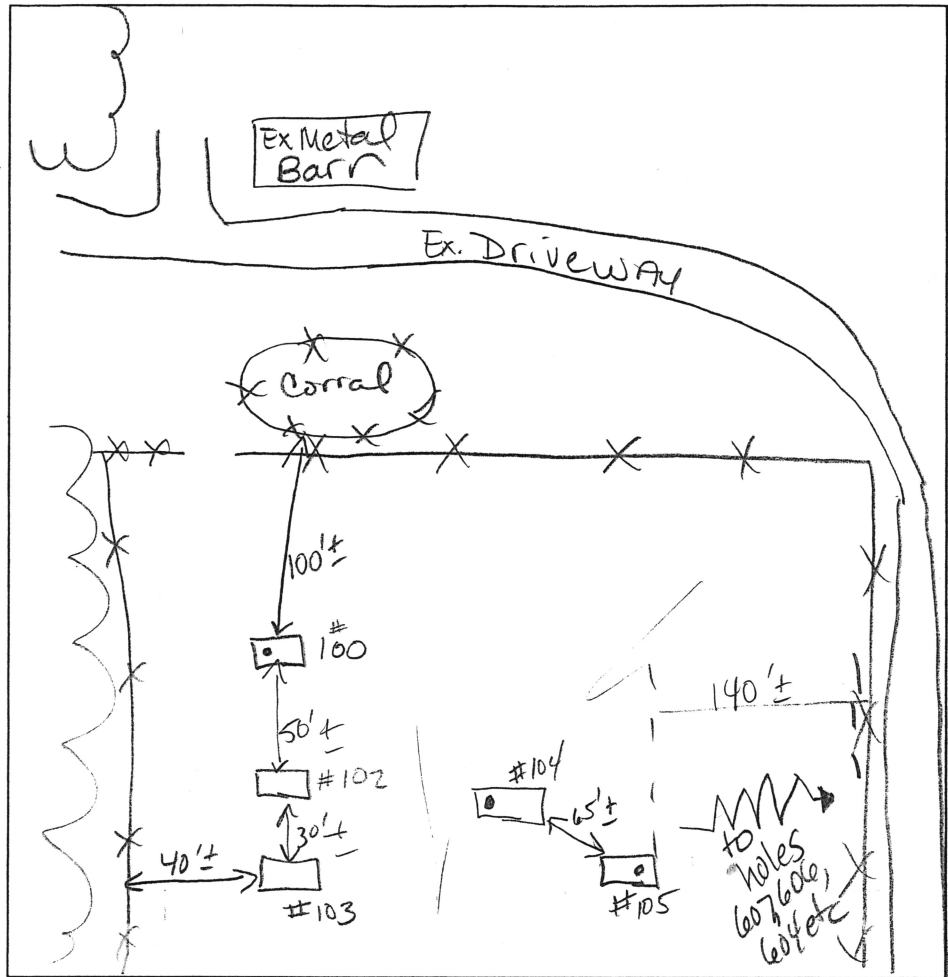 Ex Metal
Barn
Ex. DriveWAy
Corral
100'±
#
100
50'±
#102
30'±
40'±
#103
#104
65'±
#105
140'±
to
holes
607, 606,
604 etc